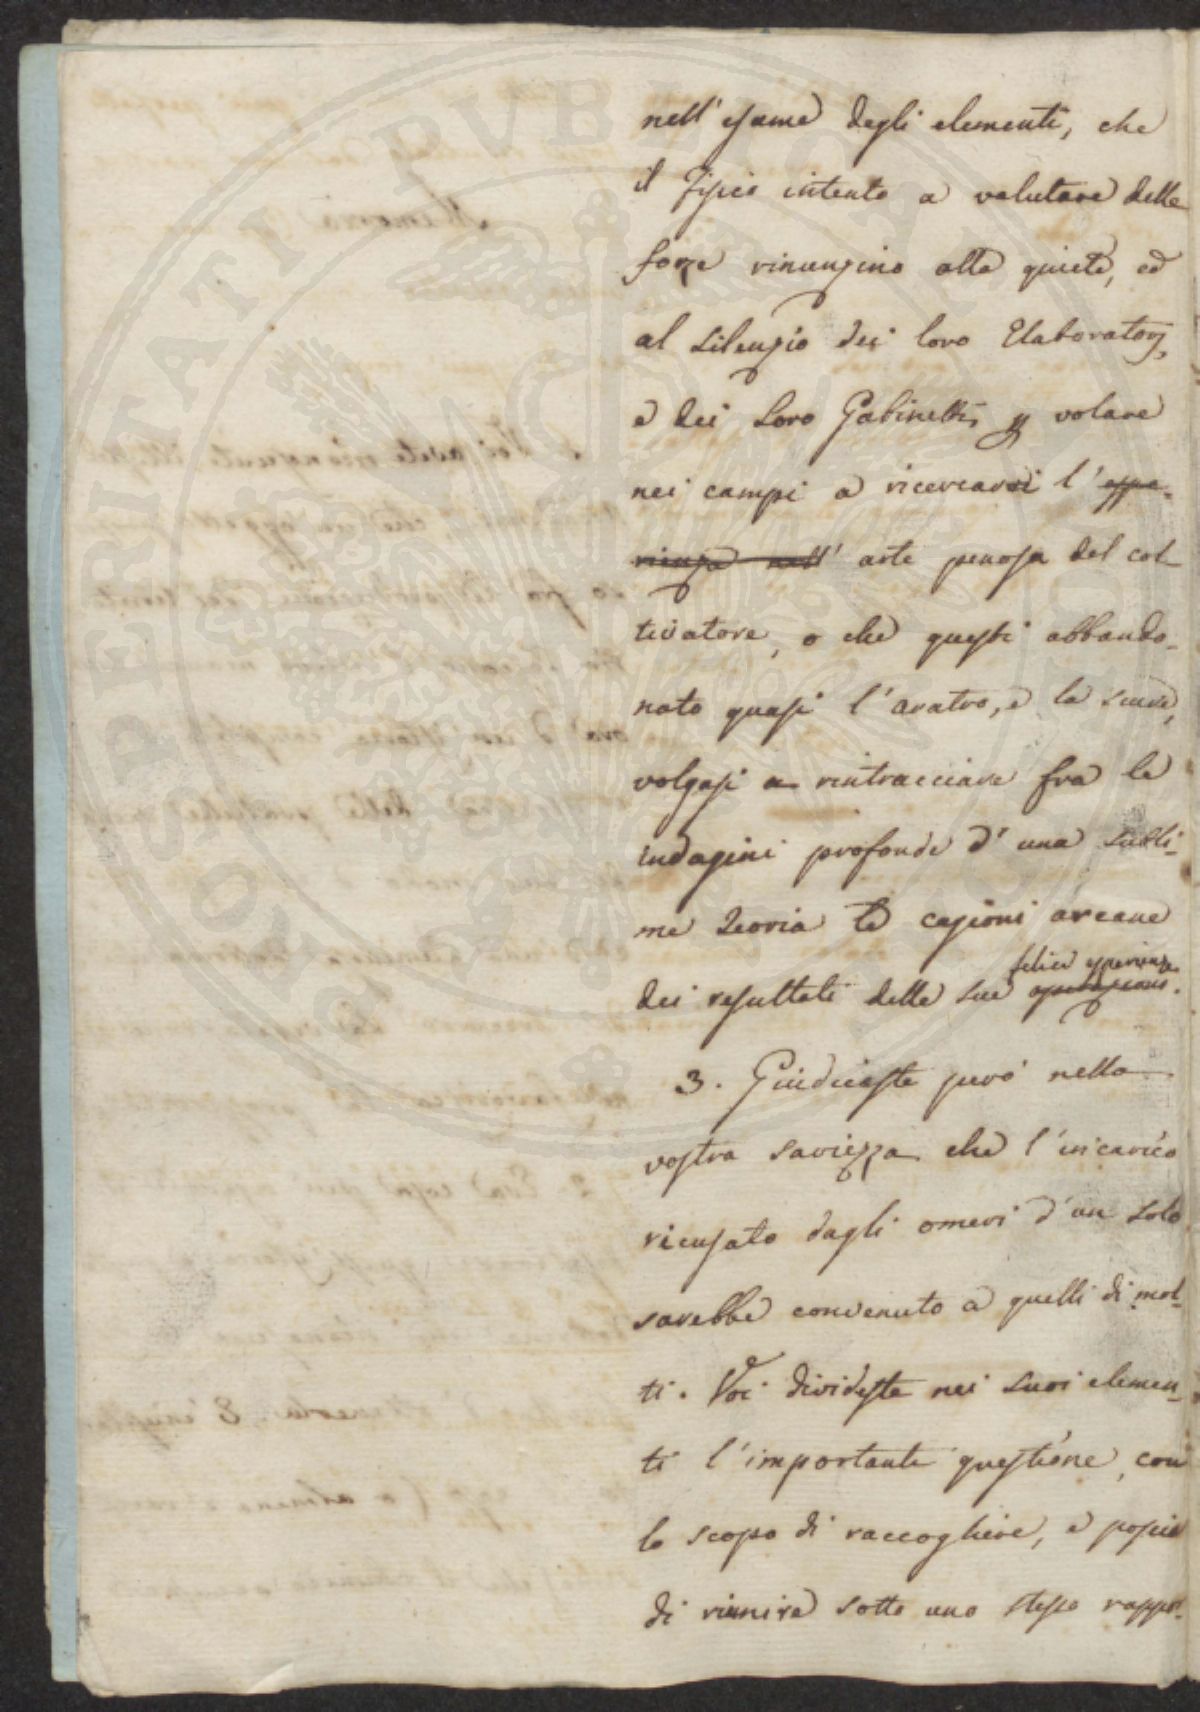 nell'esame degli elementi, che
il Fisico intento a valutare delle
forze rinunzino alla quiete, ed
al silenzio dei loro Elaboratorj,
e dei loro Gabinetti, p volare
nei campi a ricercarvi l' espe-
rienza nell' arte penosa del col-
tivatore, o che questi abbando-
nato quasi l'aratro, e la scure,
volgasi a rintracciare fra le
indagini profonde d'una subli-
me Teoria le cagioni arcane
felici esperienze.
dei resultati delle sue operazioni.
3. Giudicaste però nella
vostra saviezza che l'incarico
ricusato dagli omeri d'un solo
sarebbe convenuto a quelli di mol-
ti. Voi divideste nei suoi elemen-
ti l'importante questione, con
lo scopo di raccogliere, e poscia
di riunire sotto uno stesso rappor-
PROSPERITATI PUBLICAE